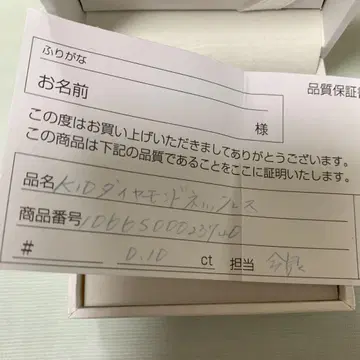 ふりがな
品質保証書
お名前
様
この度はお買い上げいただきましてありがとうございます。
この商品は下記の品質であることをここに証明いたします。
品名 K10ダイヤモンドネックレス
商品番号
# 0.10 ct 担当